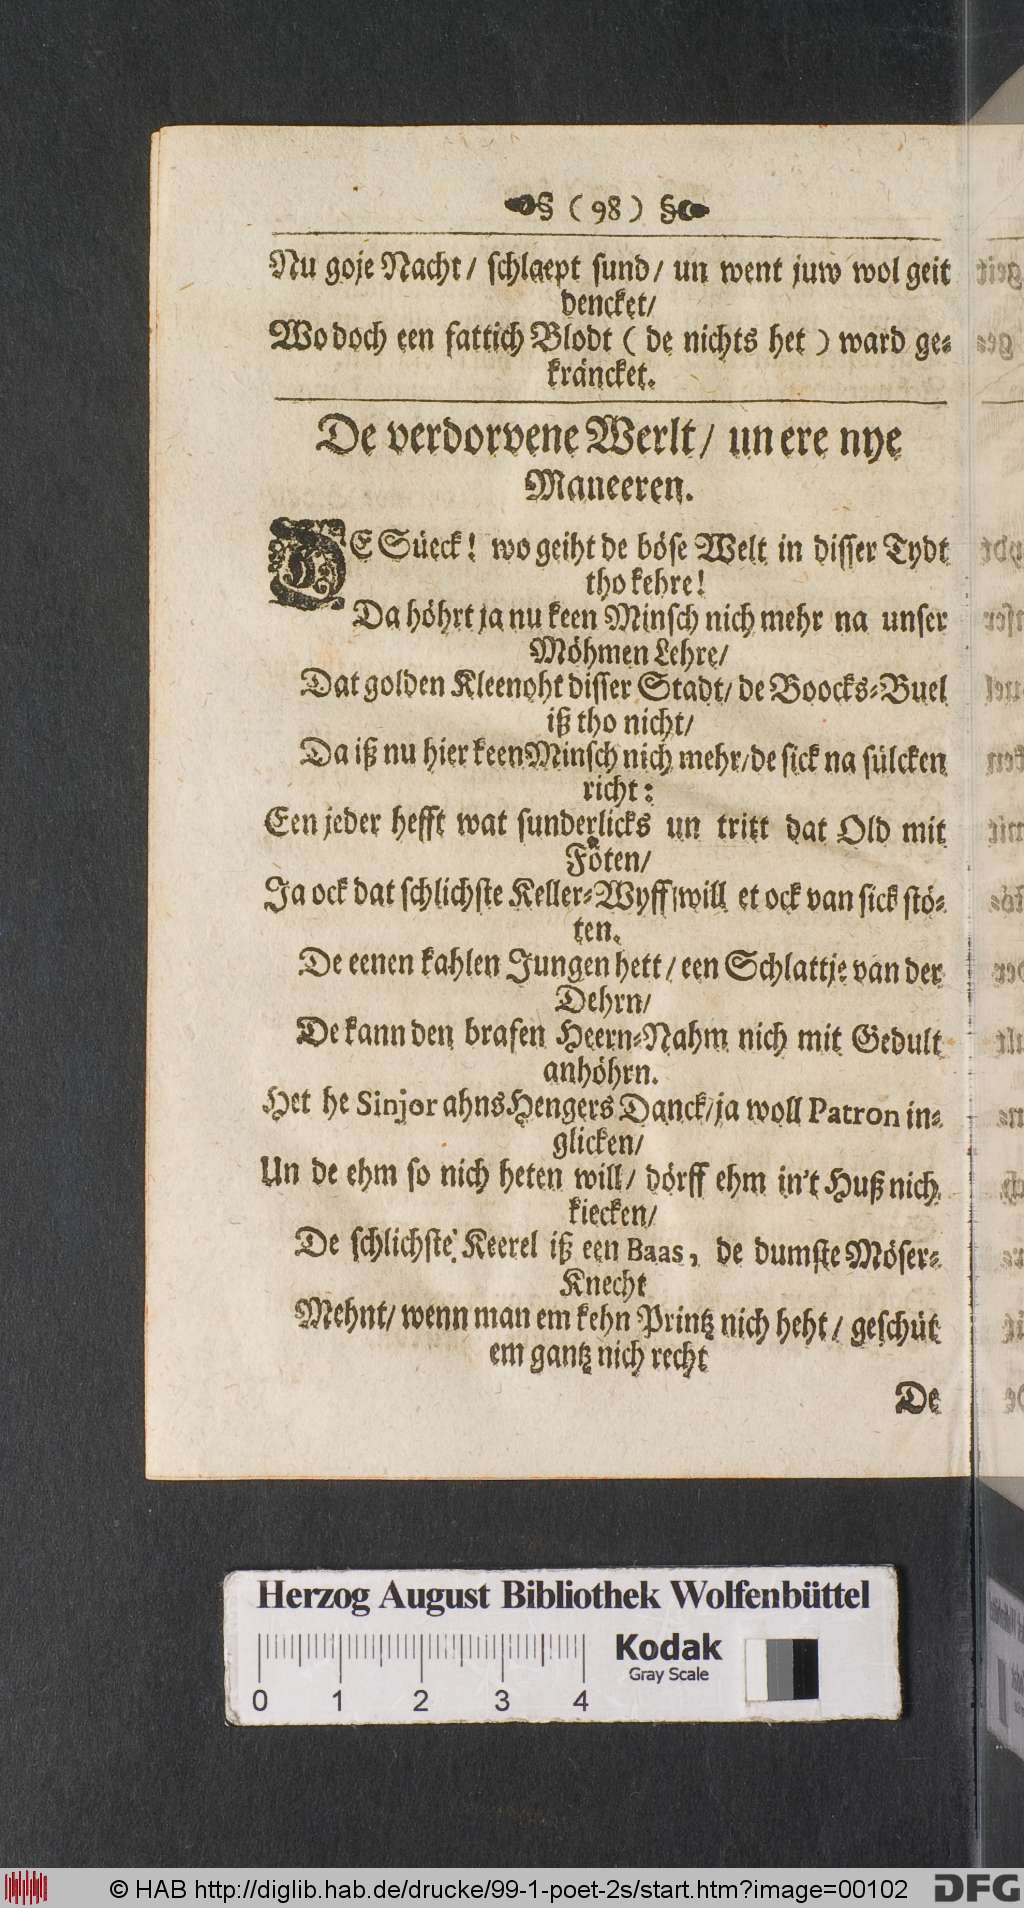 § ( 98 ) §
Nu goje Nacht/ schlaept sund/ un went juw wol geit
dencket/
Wo doch een fattich Blodt ( de nichts het ) ward ge-
kräncket.
De verdorvene Werlt/ un ere nye
Maneeren.
DE Süeck! wo geiht de böse Welt in disser Tydt
tho kehre!
Da höhrt ja nu keen Minsch nich mehr na unser
Möhmen Lehre/
Dat golden Kleenoht disser Stadt/ de Boocks-Buel
iß tho nicht/
Da iß nu hier keen Minsch nich mehr/ de sick na sülcken
richt:
Een jeder hefft wat sunderlicks un tritt dat Old mit
Föten/
Ja ock dat schlichste Keller-Wyff/ will et ock van sick stö-
ten.
De eenen kahlen Jungen hett/ een Schlattje van der
Dehrn/
De kann den brafen Heern-Nahm nich mit Gedult
anhöhrn.
Het he Sinjor ahns Hengers Danck/ ja woll Patron in-
glicken/
Un de ehm so nich heten will/ dörff ehm in't Huß nich
kiecken/
De schlichste Keerel iß een Baas, de dumste Möser-
Knecht
Mehnt/ wenn man em kehn Printz nich heht/ geschüt
em gantz nich recht
De
Herzog August Bibliothek Wolfenbüttel
0 1 2 3 4
Kodak
Gray Scale
© HAB http://diglib.hab.de/drucke/99-1-poet-2s/start.htm?image=00102
DFG